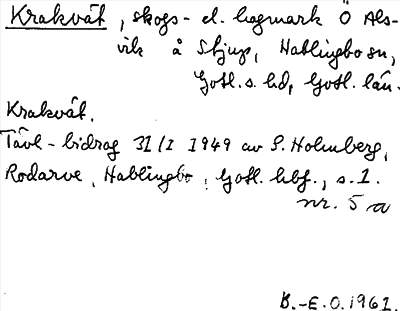 Krakvät, skogs- el. hagmark Ö Als-
vik å Stjups, Hablingbo sn,
Gotl. s. hd, Gotl. län.
Krakvät.
Tävl-bidrag 31/I 1949 av S. Holmberg,
Rodarve, Hablingbo, Gotl. hbf., s. 1.
nr. 5 a
B.-E.O. 1961.